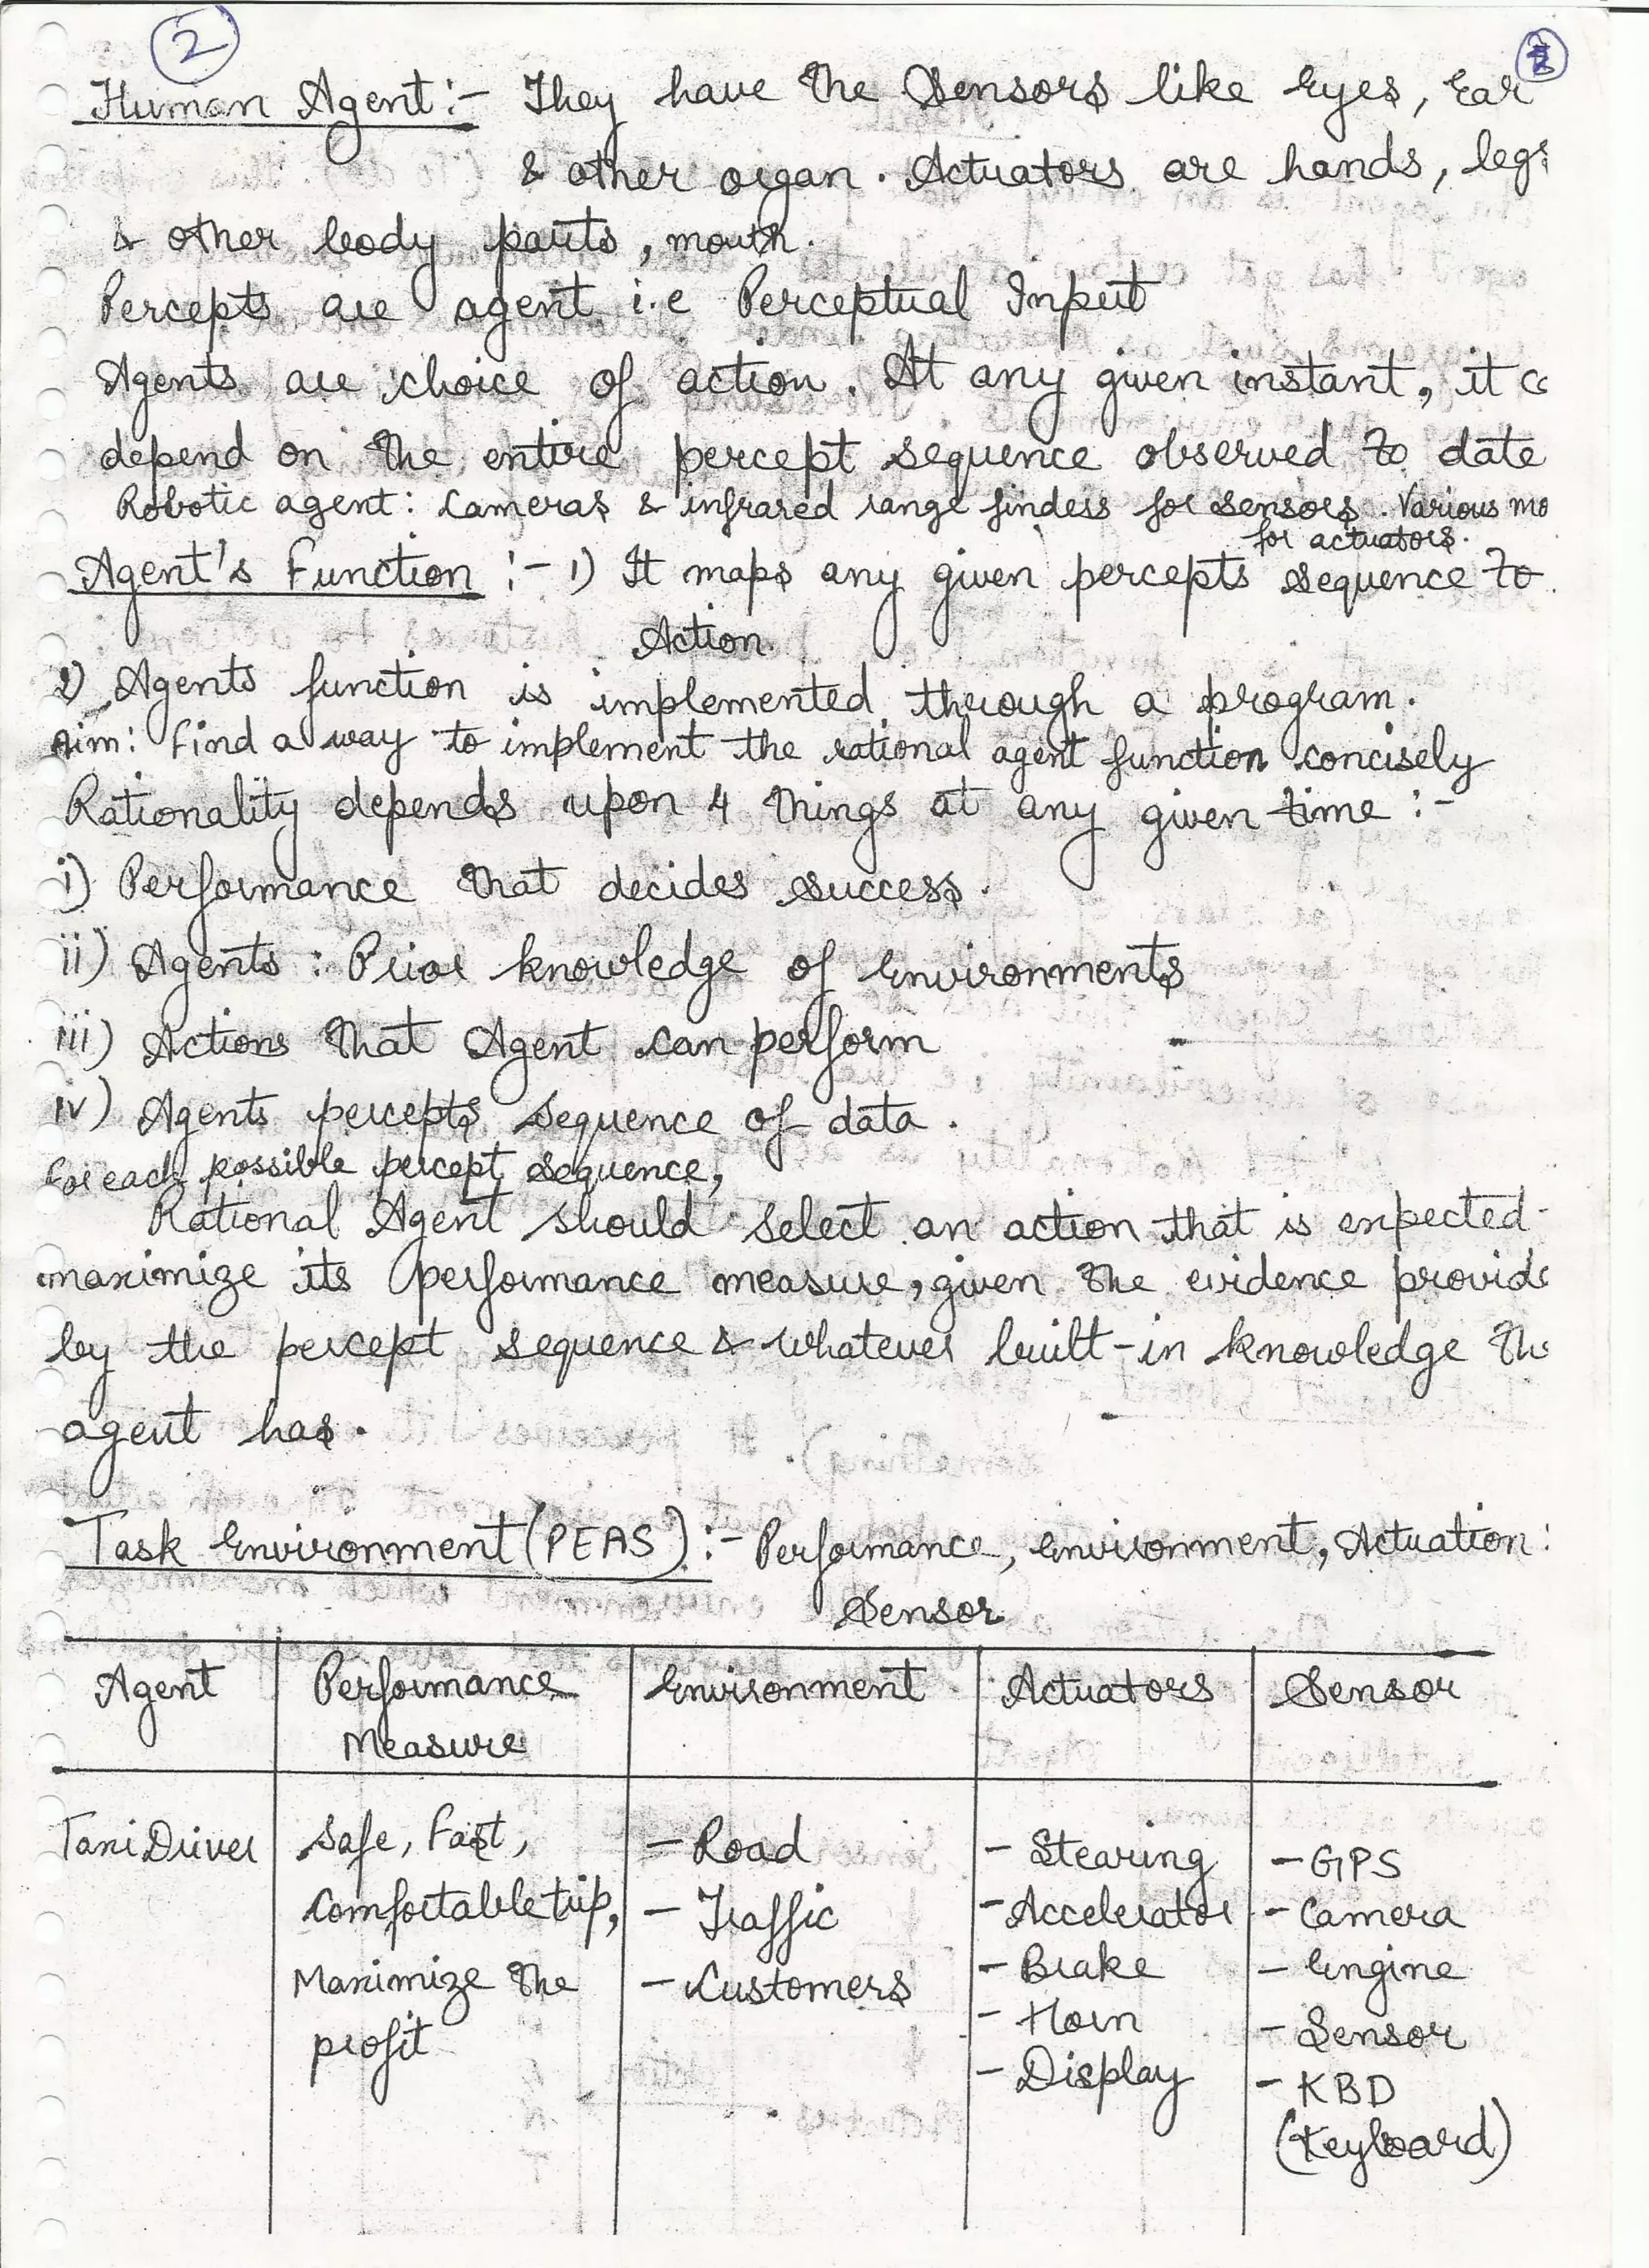 2
Human Agent :- They have the Sensors like Eyes, Ear
& other organ. Actuators are hands, legs
& other body parts, mouth.
Percepts are agent i.e Perceptual Input
Agents are choice of action. At any given instant, it
depend on the entire percept sequence observed to date
Robotic agent: Cameras & infrared range finders for sensors. Various
for actuators.
Agent's Function :- 1) It maps any given percepts sequence to
Action.
2) Agents function is implemented through a program.
Aim: Find a way to implement the rational agent function concisely
Rationality depends upon 4 things at any given time :-
i) Performance that decides success.
ii) Agents : Prior knowledge of Environments
iii) Actions that Agent can perform
iv) Agents percepts sequence of data.
For each possible percept sequence,
Rational Agent should select an action that is expected
maximize its performance measure, given the evidence
by the percept sequence & whatever built-in knowledge
agent has.
Task Environment (PEAS) :- Performance, Environment, Actuation
Sensor
Agent Performance Environment Actuators Sensor
Measure
Taxi Driver Safe, Fast, - Road - Stearing - GPS
Comfortable trip, - Traffic - Accelerator - Camera
Maximize the - Customers - Brake - Engine
profit - Horn - Sensor
- Display - KBD
(Keyboard)